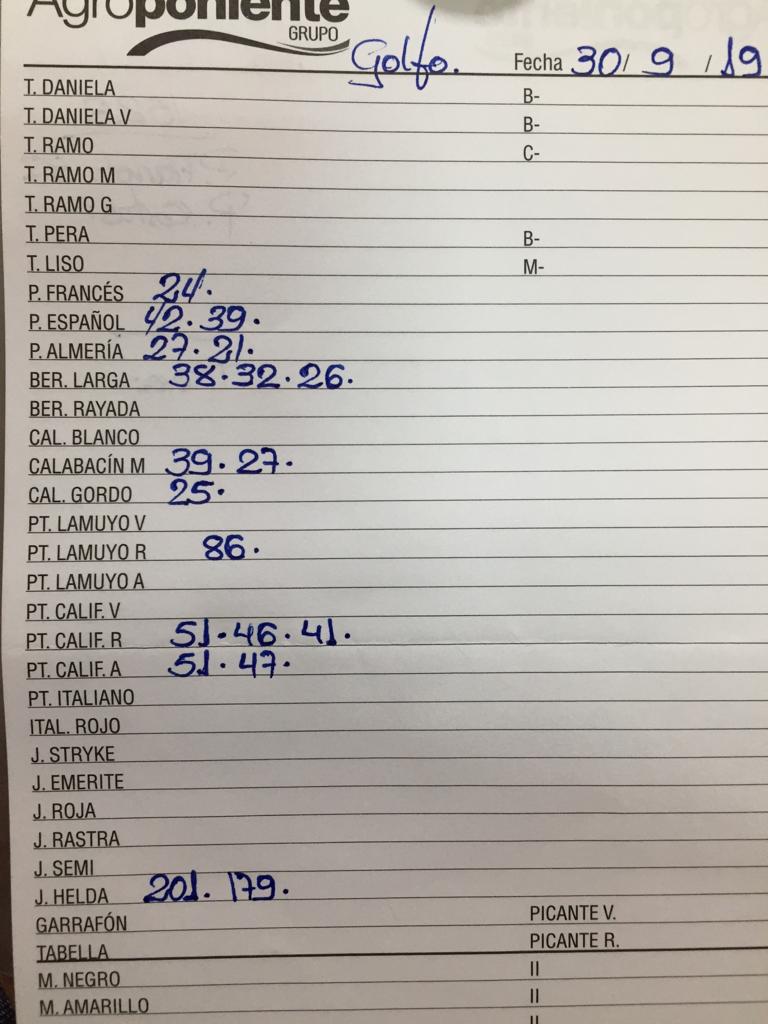 Agroponiente
GRUPO
Golfo. Fecha 30/ 9 / 19
T. DANIELA B-
T. DANIELA V B-
T. RAMO C-
T. RAMO M
T. RAMO G
T. PERA B-
T. LISO M-
P. FRANCÉS 24.
P. ESPAÑOL 42. 39.
P. ALMERÍA 27. 21.
BER. LARGA 38. 32. 26.
BER. RAYADA
CAL. BLANCO
CALABACÍN M 39. 27.
CAL. GORDO 25.
PT. LAMUYO V
PT. LAMUYO R 86.
PT. LAMUYO A
PT. CALIF. V
PT. CALIF. R 51. 46. 41.
PT. CALIF. A 51. 47.
PT. ITALIANO
ITAL. ROJO
J. STRYKE
J. EMERITE
J. ROJA
J. RASTRA
J. SEMI
J. HELDA 201. 179.
GARRAFÓN PICANTE V.
TABELLA PICANTE R.
M. NEGRO II
M. AMARILLO II
II